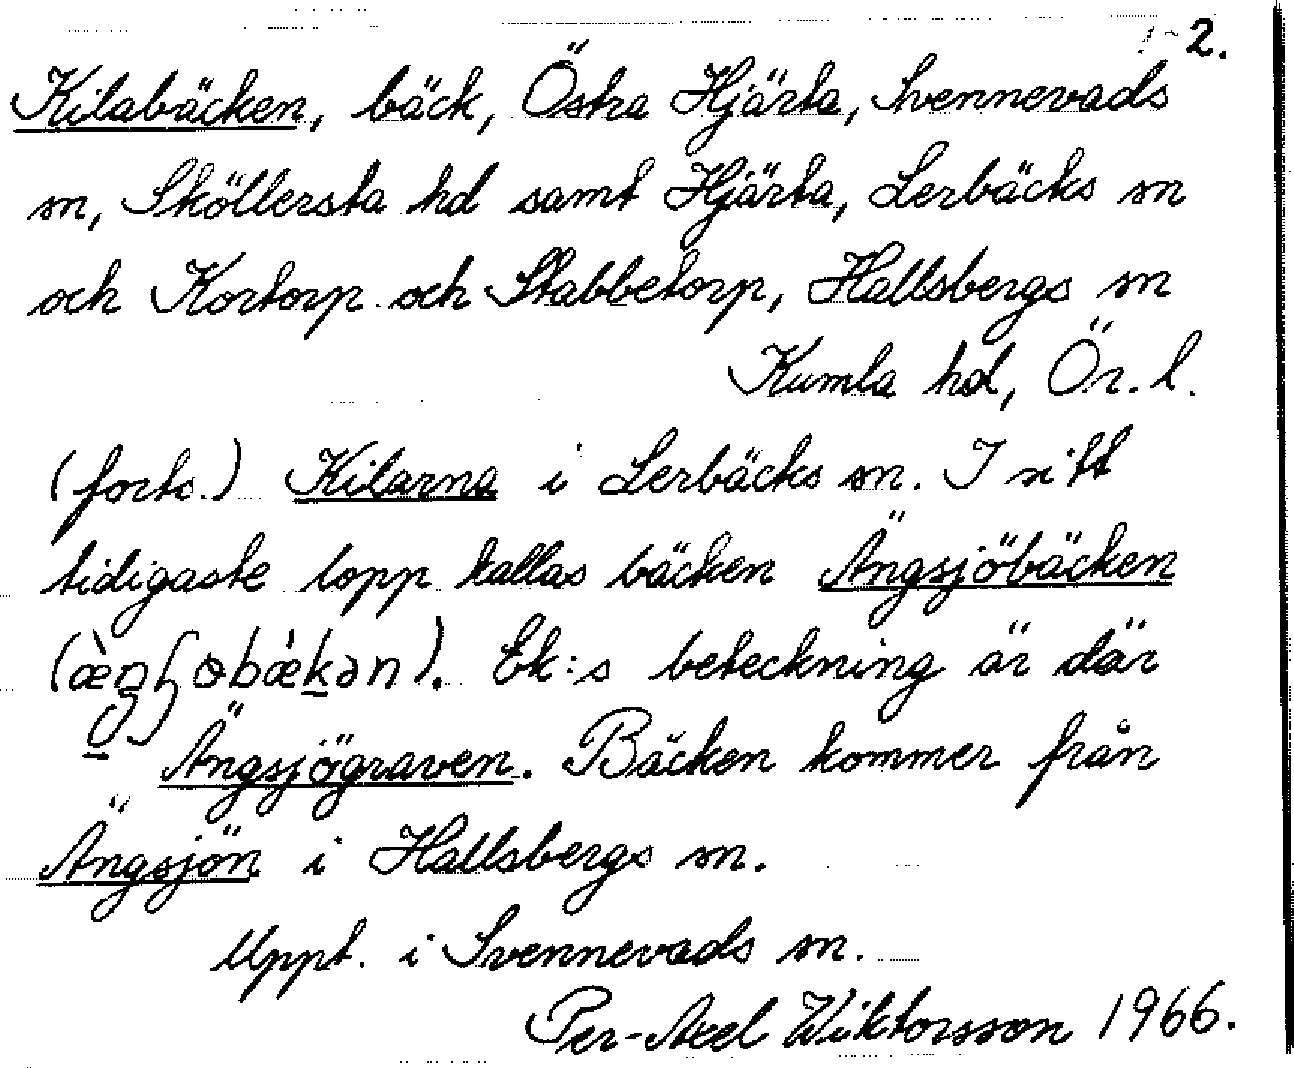 2.
Kilabäcken, bäck, Östra Hjärta, Svennevads
sn, Sköllersta hd samt Hjärta, Lerbäcks sn
och Kortorp och Stabbetorp, Hallsbergs sn
Kumla hd, Ör. l.
(forts.) Kilarna i Lerbäcks sn. I sitt
tidigaste lopp kallas bäcken Ängsjöbäcken
Ek:s beteckning är där
Ängsjögraven. Bäcken kommer från
Ängsjön i Hallsbergs sn.
Uppt. i Svennevads sn.
Per-Axel Wiktorsson 1966.